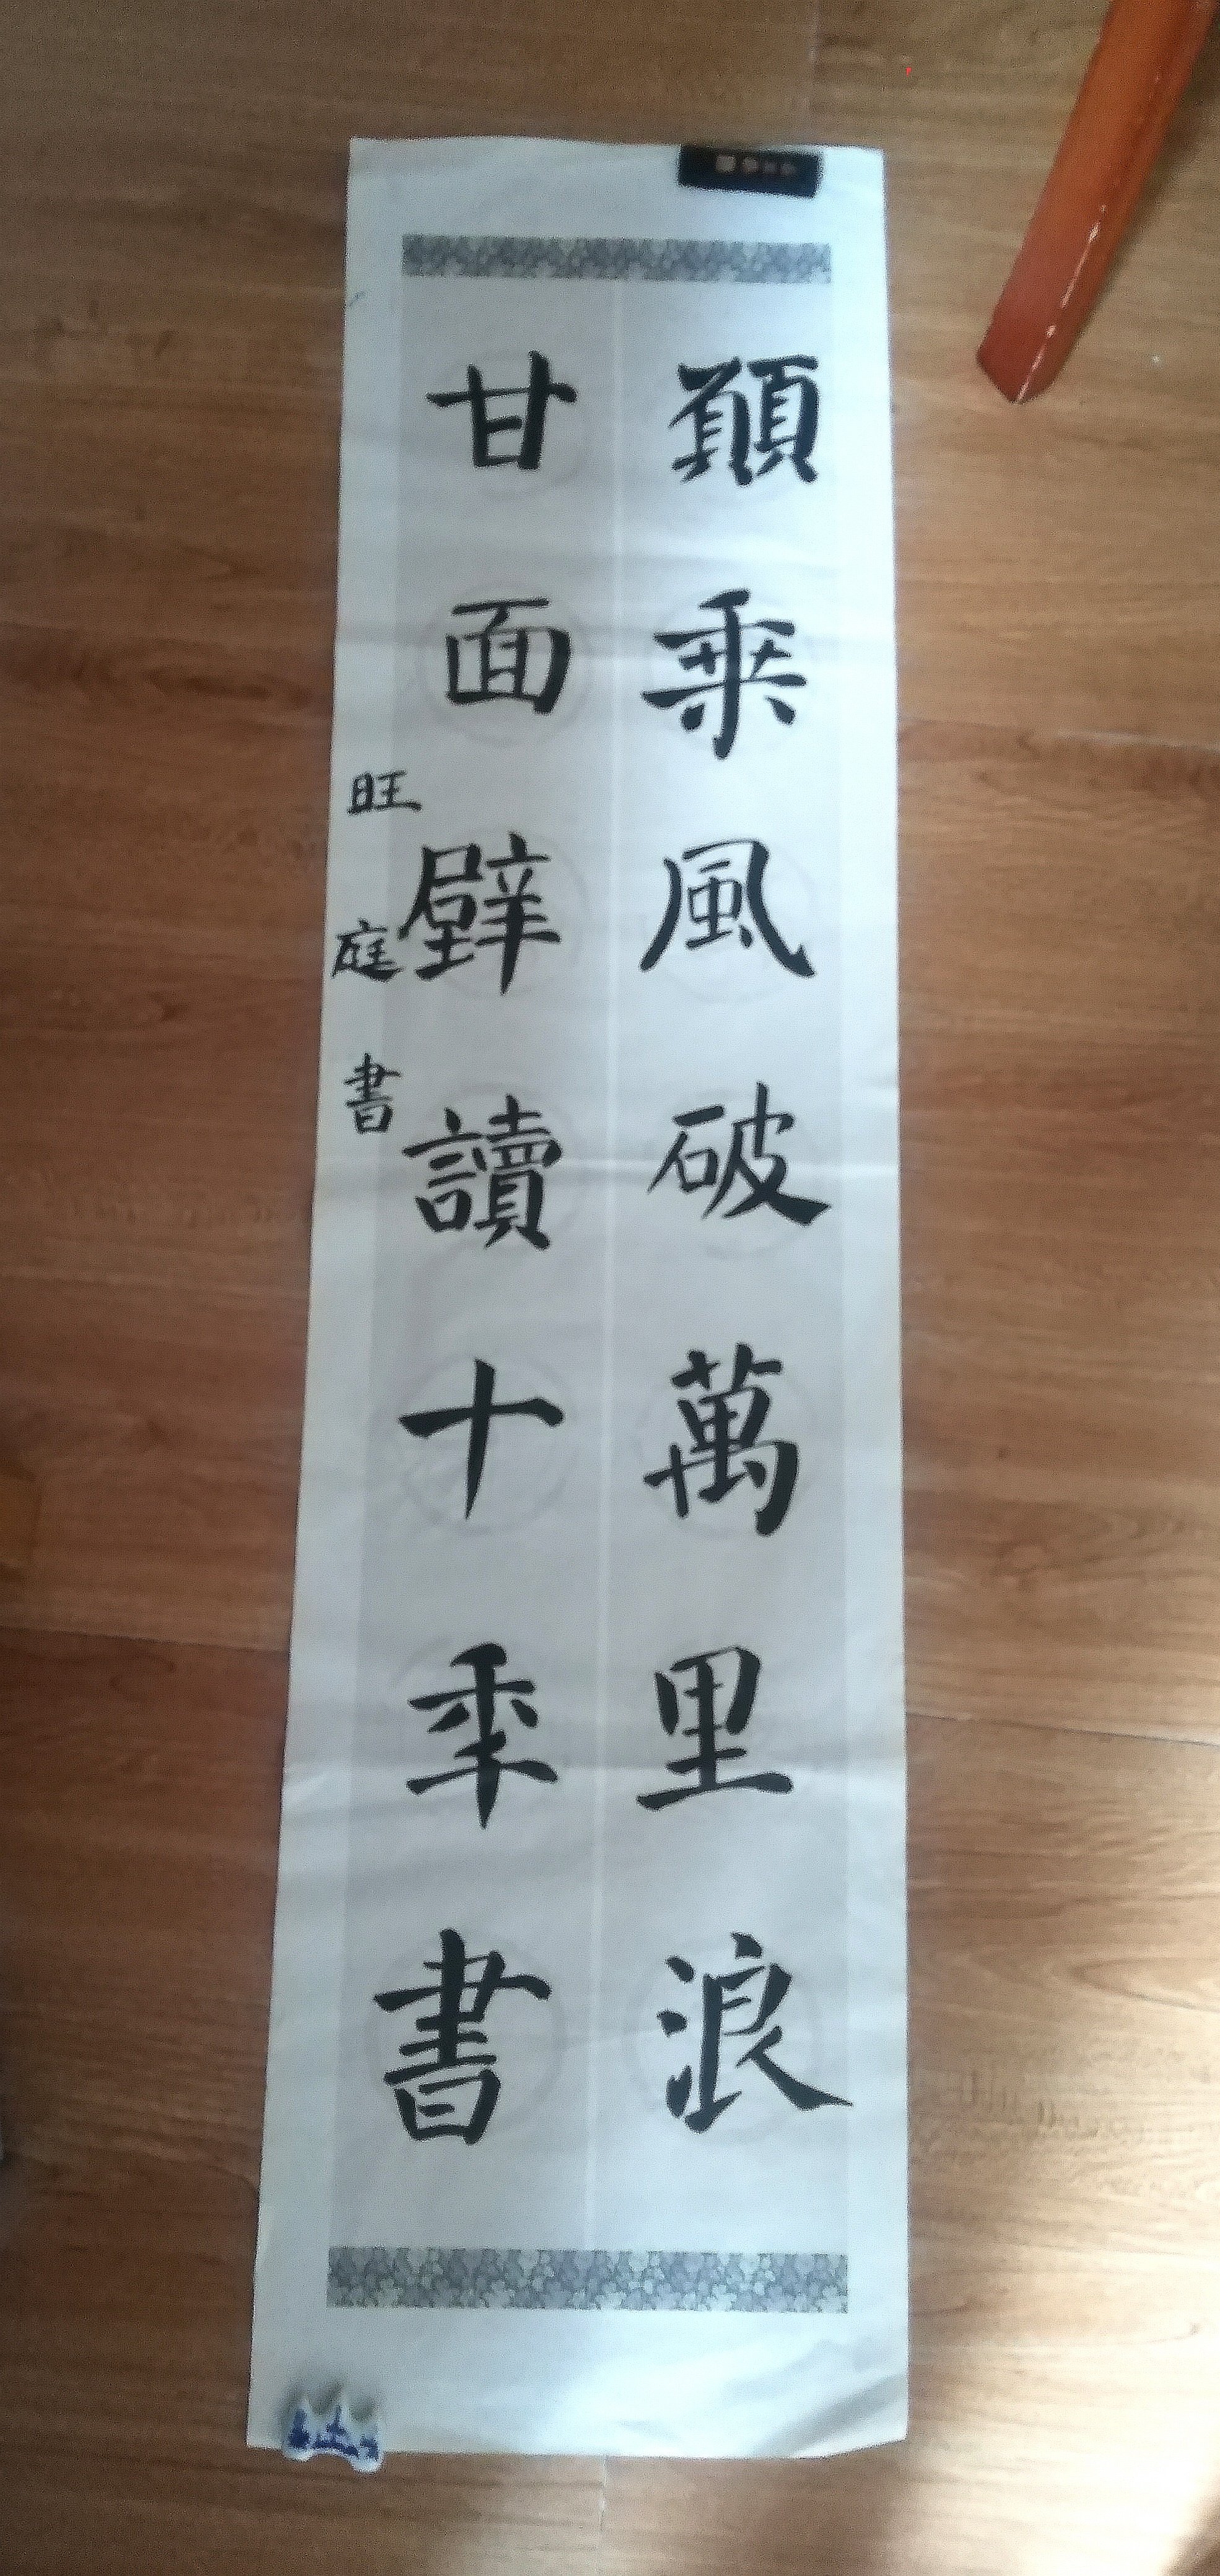 願乗風破萬里浪
甘面壁讀十年書
旺庭書